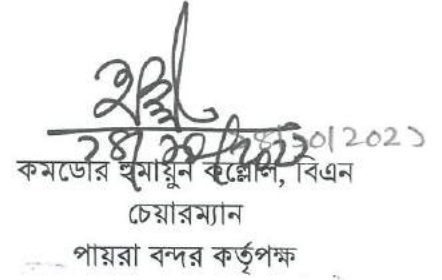 কমডোর হুমায়ুন কল্লোল, বিএন
চেয়ারম্যান
পায়রা বন্দর কর্তৃপক্ষ